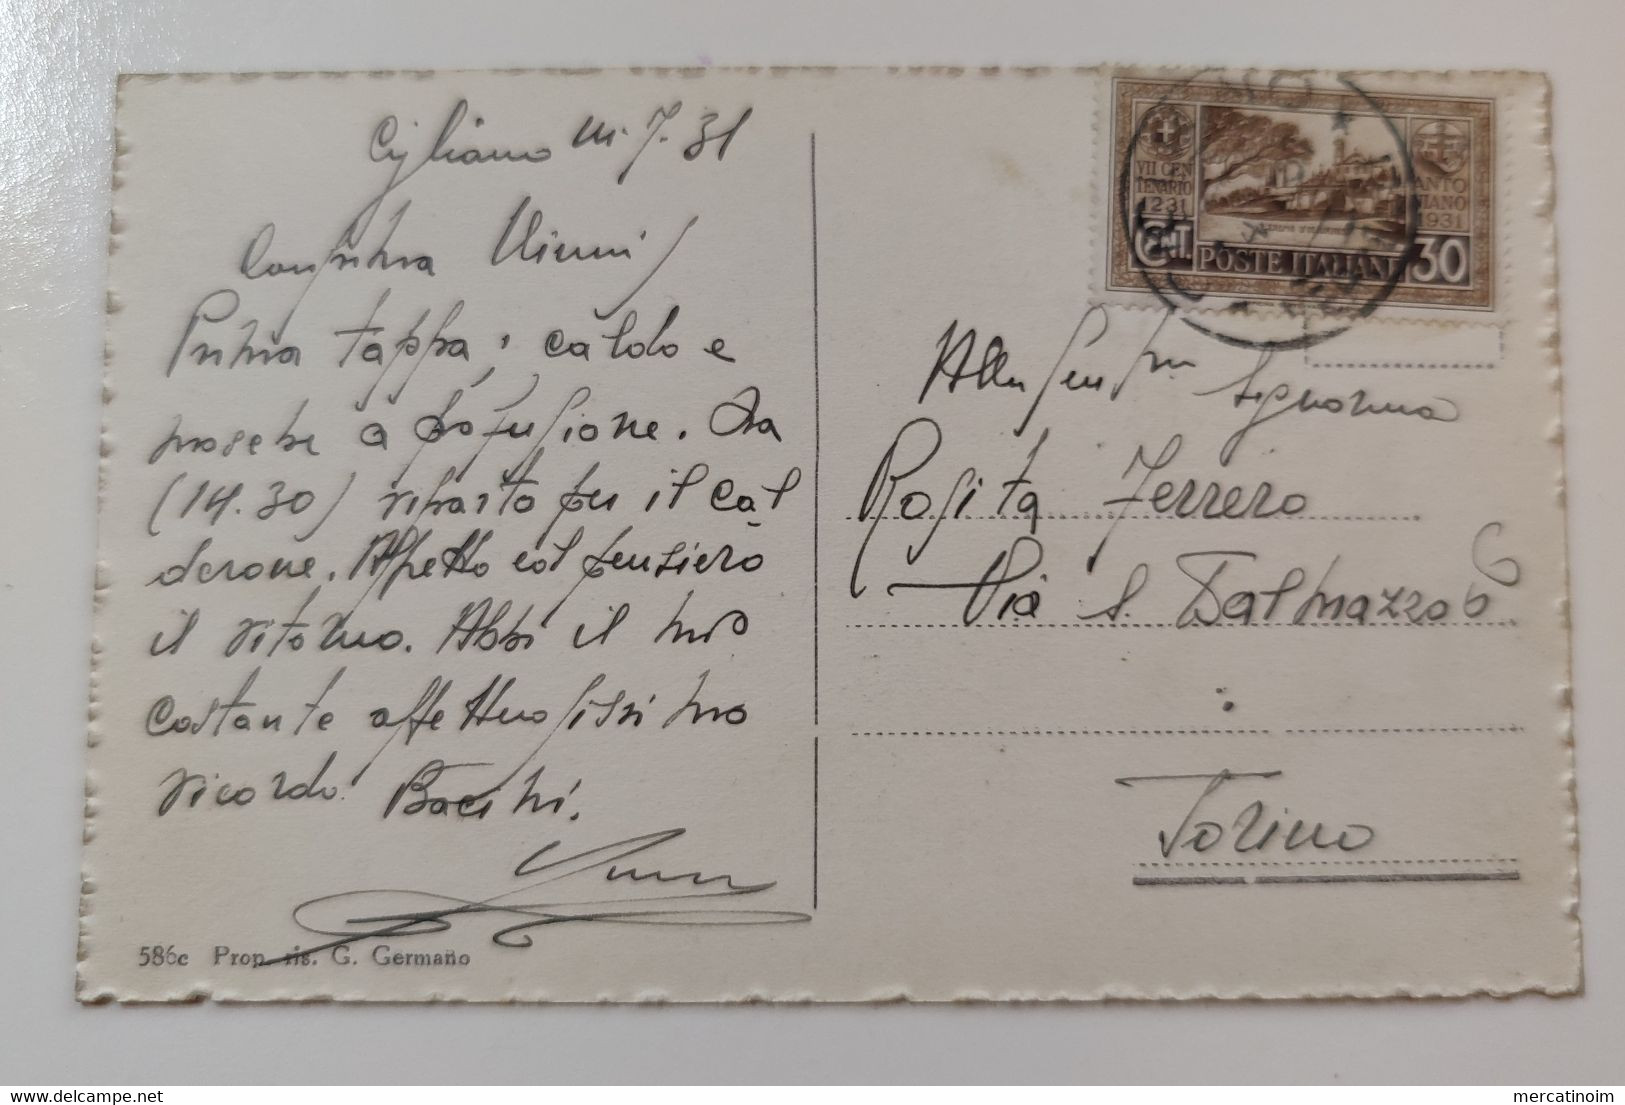 Cigliano 7.31
Prima tappa: caldo e
mosche a profusione. Ora
(14.30) riparto per il cal
derone. Aspetto col pensiero
il ritorno. Abbi il mio
costante affettuosissimo
ricordo. Bacini.
586c Prop. ris. G. Germano
VII CEN
TENARIO
1231
ANTO
1931
CENT. POSTE ITALIANE 30
Alla Gent.ma Signorina
Rosita Ferrero
Via S. Dalmazzo 6
Torino
mercatinoim
delcampe.net